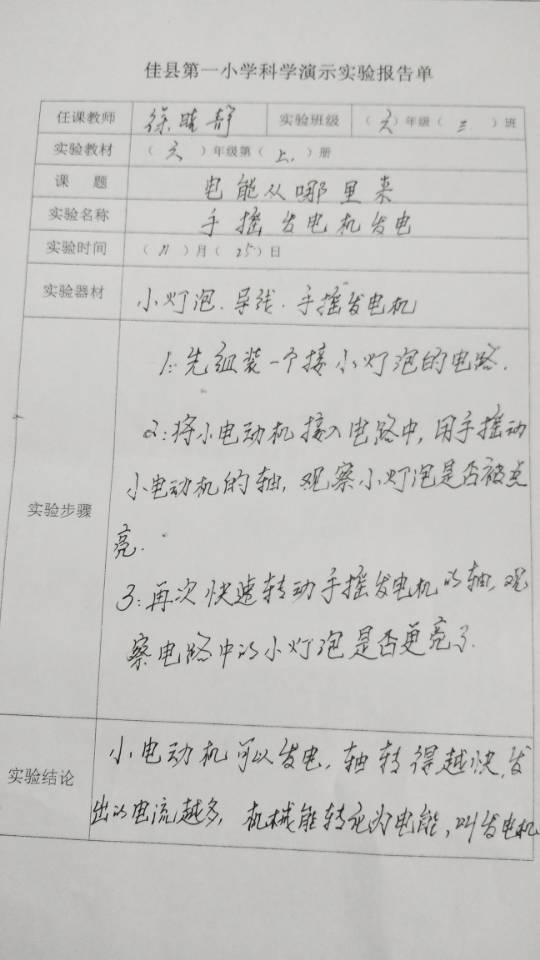 佳县第一小学科学演示实验报告单
任课教师 徐晓静 实验班级 （六）年级（三）班
实验教材 （六）年级第（上.）册
课 题 电能从哪里来
实验名称 手摇发电机发电
实验时间 （11）月（25）日
实验器材 小灯泡.导线.手摇发电机
1:先组装一个接小灯泡的电路.
2:将小电动机接入电路中,用手摇动
小电动机的轴,观察小灯泡是否被点
实验步骤
亮.
3:再次快速转动手摇发电机的轴,观
察电路中的小灯泡是否更亮了.
小电动机可以发电,轴转得越快,发
实验结论
出的电流越多,机械能转化为电能,叫发电机